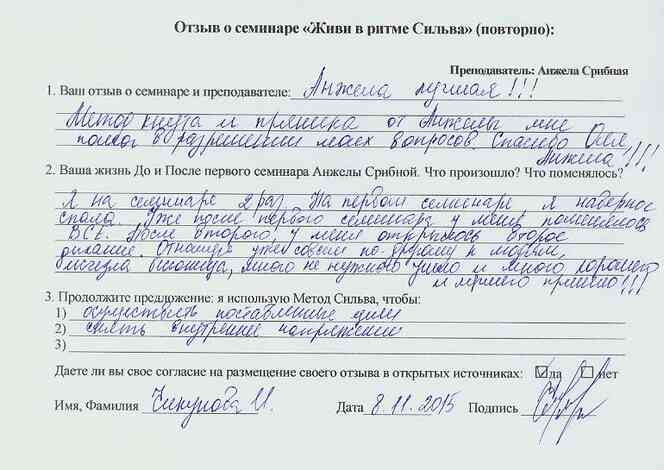 Отзыв о семинаре «Живи в ритме Сильва» (повторно):
Преподаватель: Анжела Срибная
1. Ваш отзыв о семинаре и преподавателе: Анжела лучшая!!!
Метод кнута и пряника от Анжелы мне
помог в разрешении моих вопросов. Спасибо Оля,
Анжела!!!
2. Ваша жизнь До и После первого семинара Анжелы Срибной. Что произошло? Что поменялось?
Я на семинаре 2 раз. На первом семинаре я наверное
спала. Уже после первого семинара у меня поменялось
ВСЁ. После второго у меня открылось второе
дыхание. Отношусь уже совсем по-другому к людям,
исчезла много не нужного ушло и много хорошего
и лучшего пришло!!!
3. Продолжите предложение: я использую Метод Сильва, чтобы:
1) осуществлять поставленные цели
2) снять внутреннее напряжение
3)
Даете ли вы свое согласие на размещение своего отзыва в открытых источниках: ☑да ☐нет
Имя, Фамилия Чикунова И. Дата 8.11.2015 Подпись